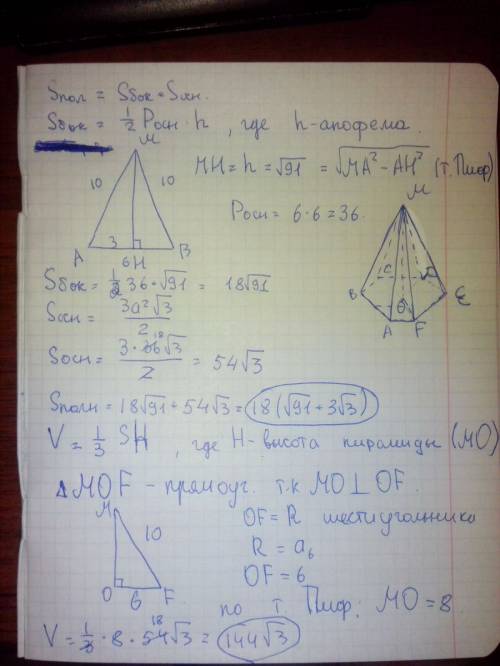 Sпол = Sбок + Sосн.
Sбок = 1/2 Pосн · h , где h - апофема.
M
10 10
A 3 H B
6
MH = h = √91 = √(MA² - AH²) (т. Пиф)
Pосн = 6 · 6 = 36.
M
B C D E
A O F
Sбок = 1/2 36 · √91 = 18√91
Sосн = 3a²√3 / 2
Sосн = 3 · 36 √3 / 2 = 54√3
18
Sполн = 18√91 + 54√3 = 18(√91 + 3√3)
V = 1/3 SH , где H - высота пирамиды (MO)
△MOF - прямоуг. т.к MO ⊥ OF.
M
10
O 6 F
OF = R шестиугольника
R = a₆
OF = 6
по т. Пиф: MO = 8
V = 1/3 · 8 · 54√3 = 144√3
18